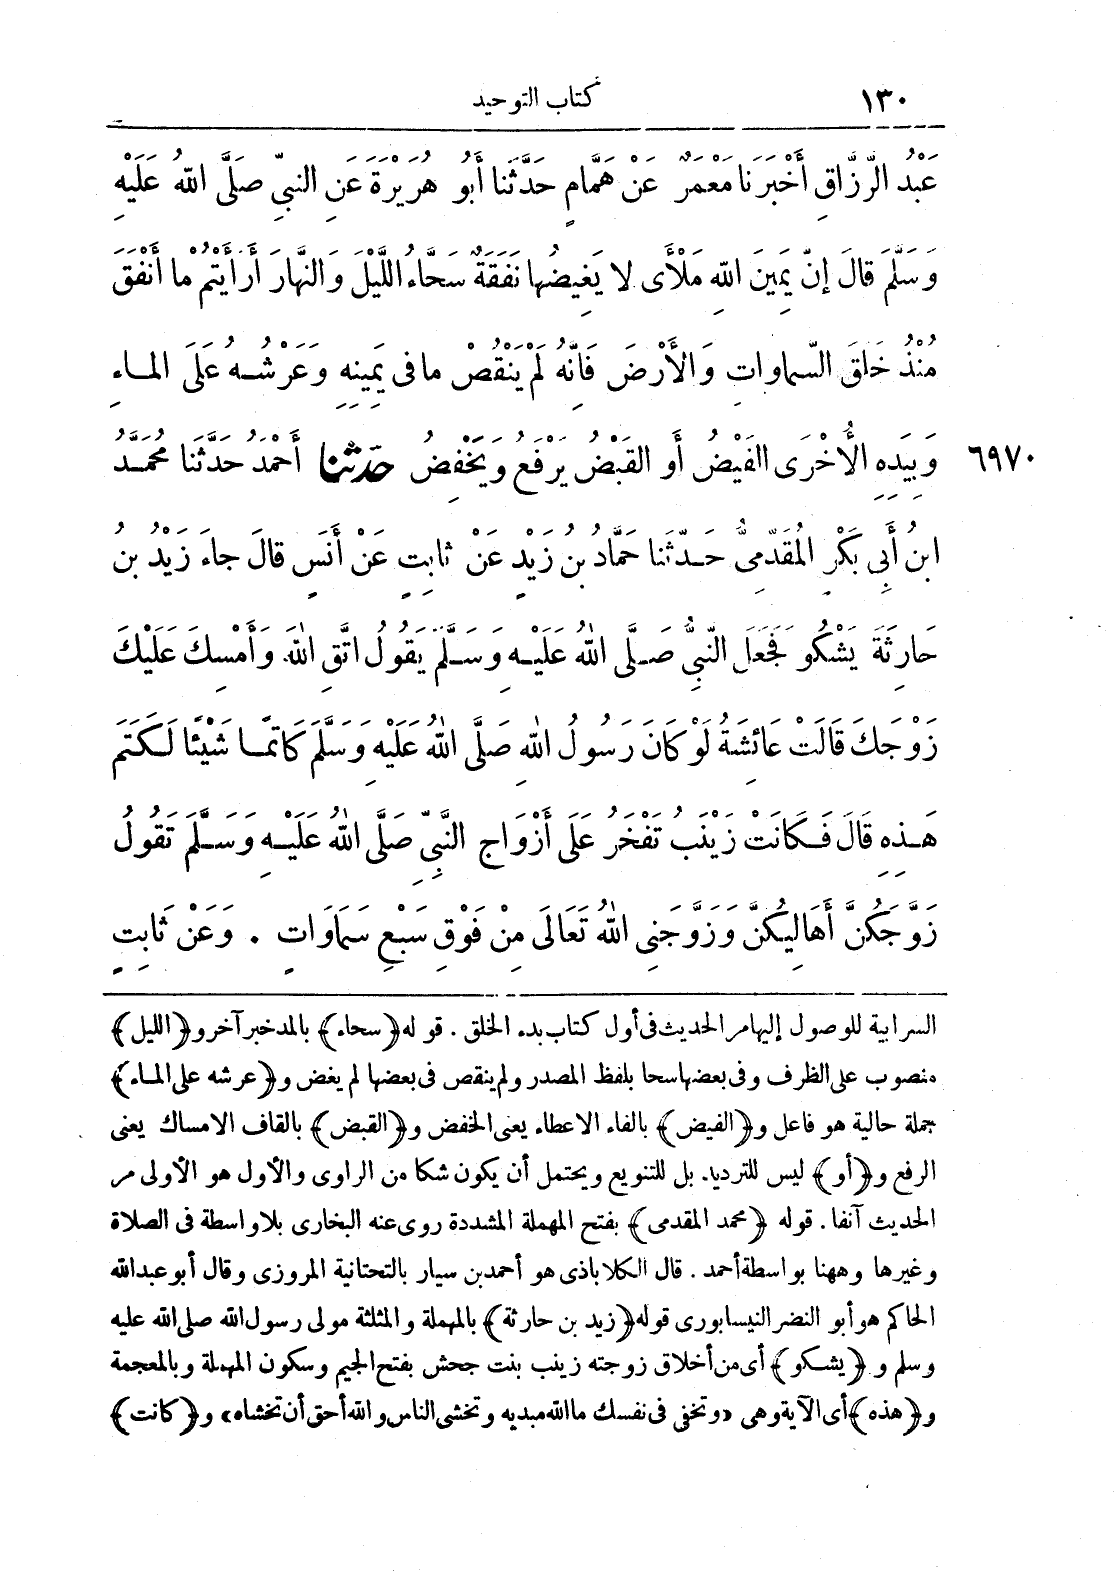 ١٣٠ كتاب التوحيد
عَبْدُ الرَّزَّاقِ أَخْبَرَنَا مَعْمَرٌ عَنْ هَمَّامٍ حَدَّثَنَا أَبُو هُرَيْرَةَ عَنِ النبيِّ صَلَّى اللهُ عَلَيْهِ
وَسَلَّمَ قَالَ إنَّ يَمِينَ اللهِ مَلْأَى لا يَغِيضُها نَفَقَةٌ سَحَّاءُ اللَّيْلَ وَالنَّهارَ أَرَأَيْتُمْ ما أَنْفَقَ
مُنْذُ خَلَقَ السَّماوات وَالأَرْضَ فَانَّهُ لَمْ يَنْقُصْ ما فى يَمِينِهِ وَعَرْشُهُ عَلَى المـاءِ
٦٩٧٠ وَبِيَدِهِ الأُخْرَى الفَيْضُ أَوِ القَبْضُ يَرْفَعُ وَيَخْفِضُ حَدَّثَنا أَحْمَدُ حَدَّثَنَا مُحَمَّدُ
ابنُ أَبِى بَكْرٍ المُقَدَّمِىُّ حَـدَّثَنا حَمَّادُ بنُ زَيْدٍ عَنْ ثابِتٍ عَنْ أَنَسٍ قالَ جاءَ زَيْدُ بنُ
حَارِثَةَ يَشْكُو فَجَعَلَ النَّبِىُّ صَـلَّى اللهُ عَلَيْـهِ وَسَـلَّمَ يَقُولُ اتَّقِ اللهَ وَأَمْسِكْ عَلَيْكَ
زَوْجَكَ قَالَتْ عَائِشَةُ لَوْ كَانَ رَسُولُ اللهِ صَلَّى اللهُ عَلَيْهِ وَسَلَّمَ كَاتِمًـا شَيْئًا لَكَتَمَ
هَـذِهِ قَالَ فَـكَانَتْ زَيْنَبُ تَفْخَرُ عَلَى أَزْوَاجِ النَّبِىِّ صَلَّى اللهُ عَلَيْـهِ وَسَـلَّمَ تَقُولُ
زَوَّجَكُنَّ أَهَالِيكُنَّ وَزَوَّجَنِى اللهُ تَعَالَى مِنْ فَوْقِ سَبْعِ سَمَاوَاتٍ . وَعَنْ ثَابِتٍ
السرابية للوصول إليهامر الحديث فى أول كتاب بدء الخلق . قوله ﴿سحاء﴾ بالمد خبر آخر و ﴿الليل﴾
منصوب على الظرف وفى بعضها سحا بلفظ المصدر ولم ينقص فى بعضها لم يغض و ﴿عرشه على الماء﴾
جملة حالية هو فاعل و ﴿الفيض﴾ بالفاء الاعطاء يعنى الخفض و ﴿القبض﴾ بالقاف الامساك يعنى
الرفع و ﴿أو﴾ ليس للترديد بل للتنويع ويحتمل أن يكون شكا من الراوى والأول هو الأولى مر
الحديث آنفا . قوله ﴿محمد المقدمى﴾ بفتح المهملة المشددة روى عنه البخارى بلا واسطة فى الصلاة
وغيرها وههنا بواسطة أحمد . قال الكلاباذى هو أحمد بن سيار بالتحتانية المروزى وقال أبو عبدالله
الحاكم هو أبو النضر النيسابورى قوله ﴿زيد بن حارثة﴾ بالمهملة والمثلثة مولى رسول الله صلى الله عليه
وسلم و ﴿يشكو﴾ أى من أخلاق زوجته زينب بنت جحش بفتح الجيم وسكون المهملة وبالمعجمة
و ﴿هذه﴾ أى الآية وهى «وتخفى فى نفسك ما الله مبديه وتخشى الناس والله أحق أن تخشاه» و ﴿كانت﴾